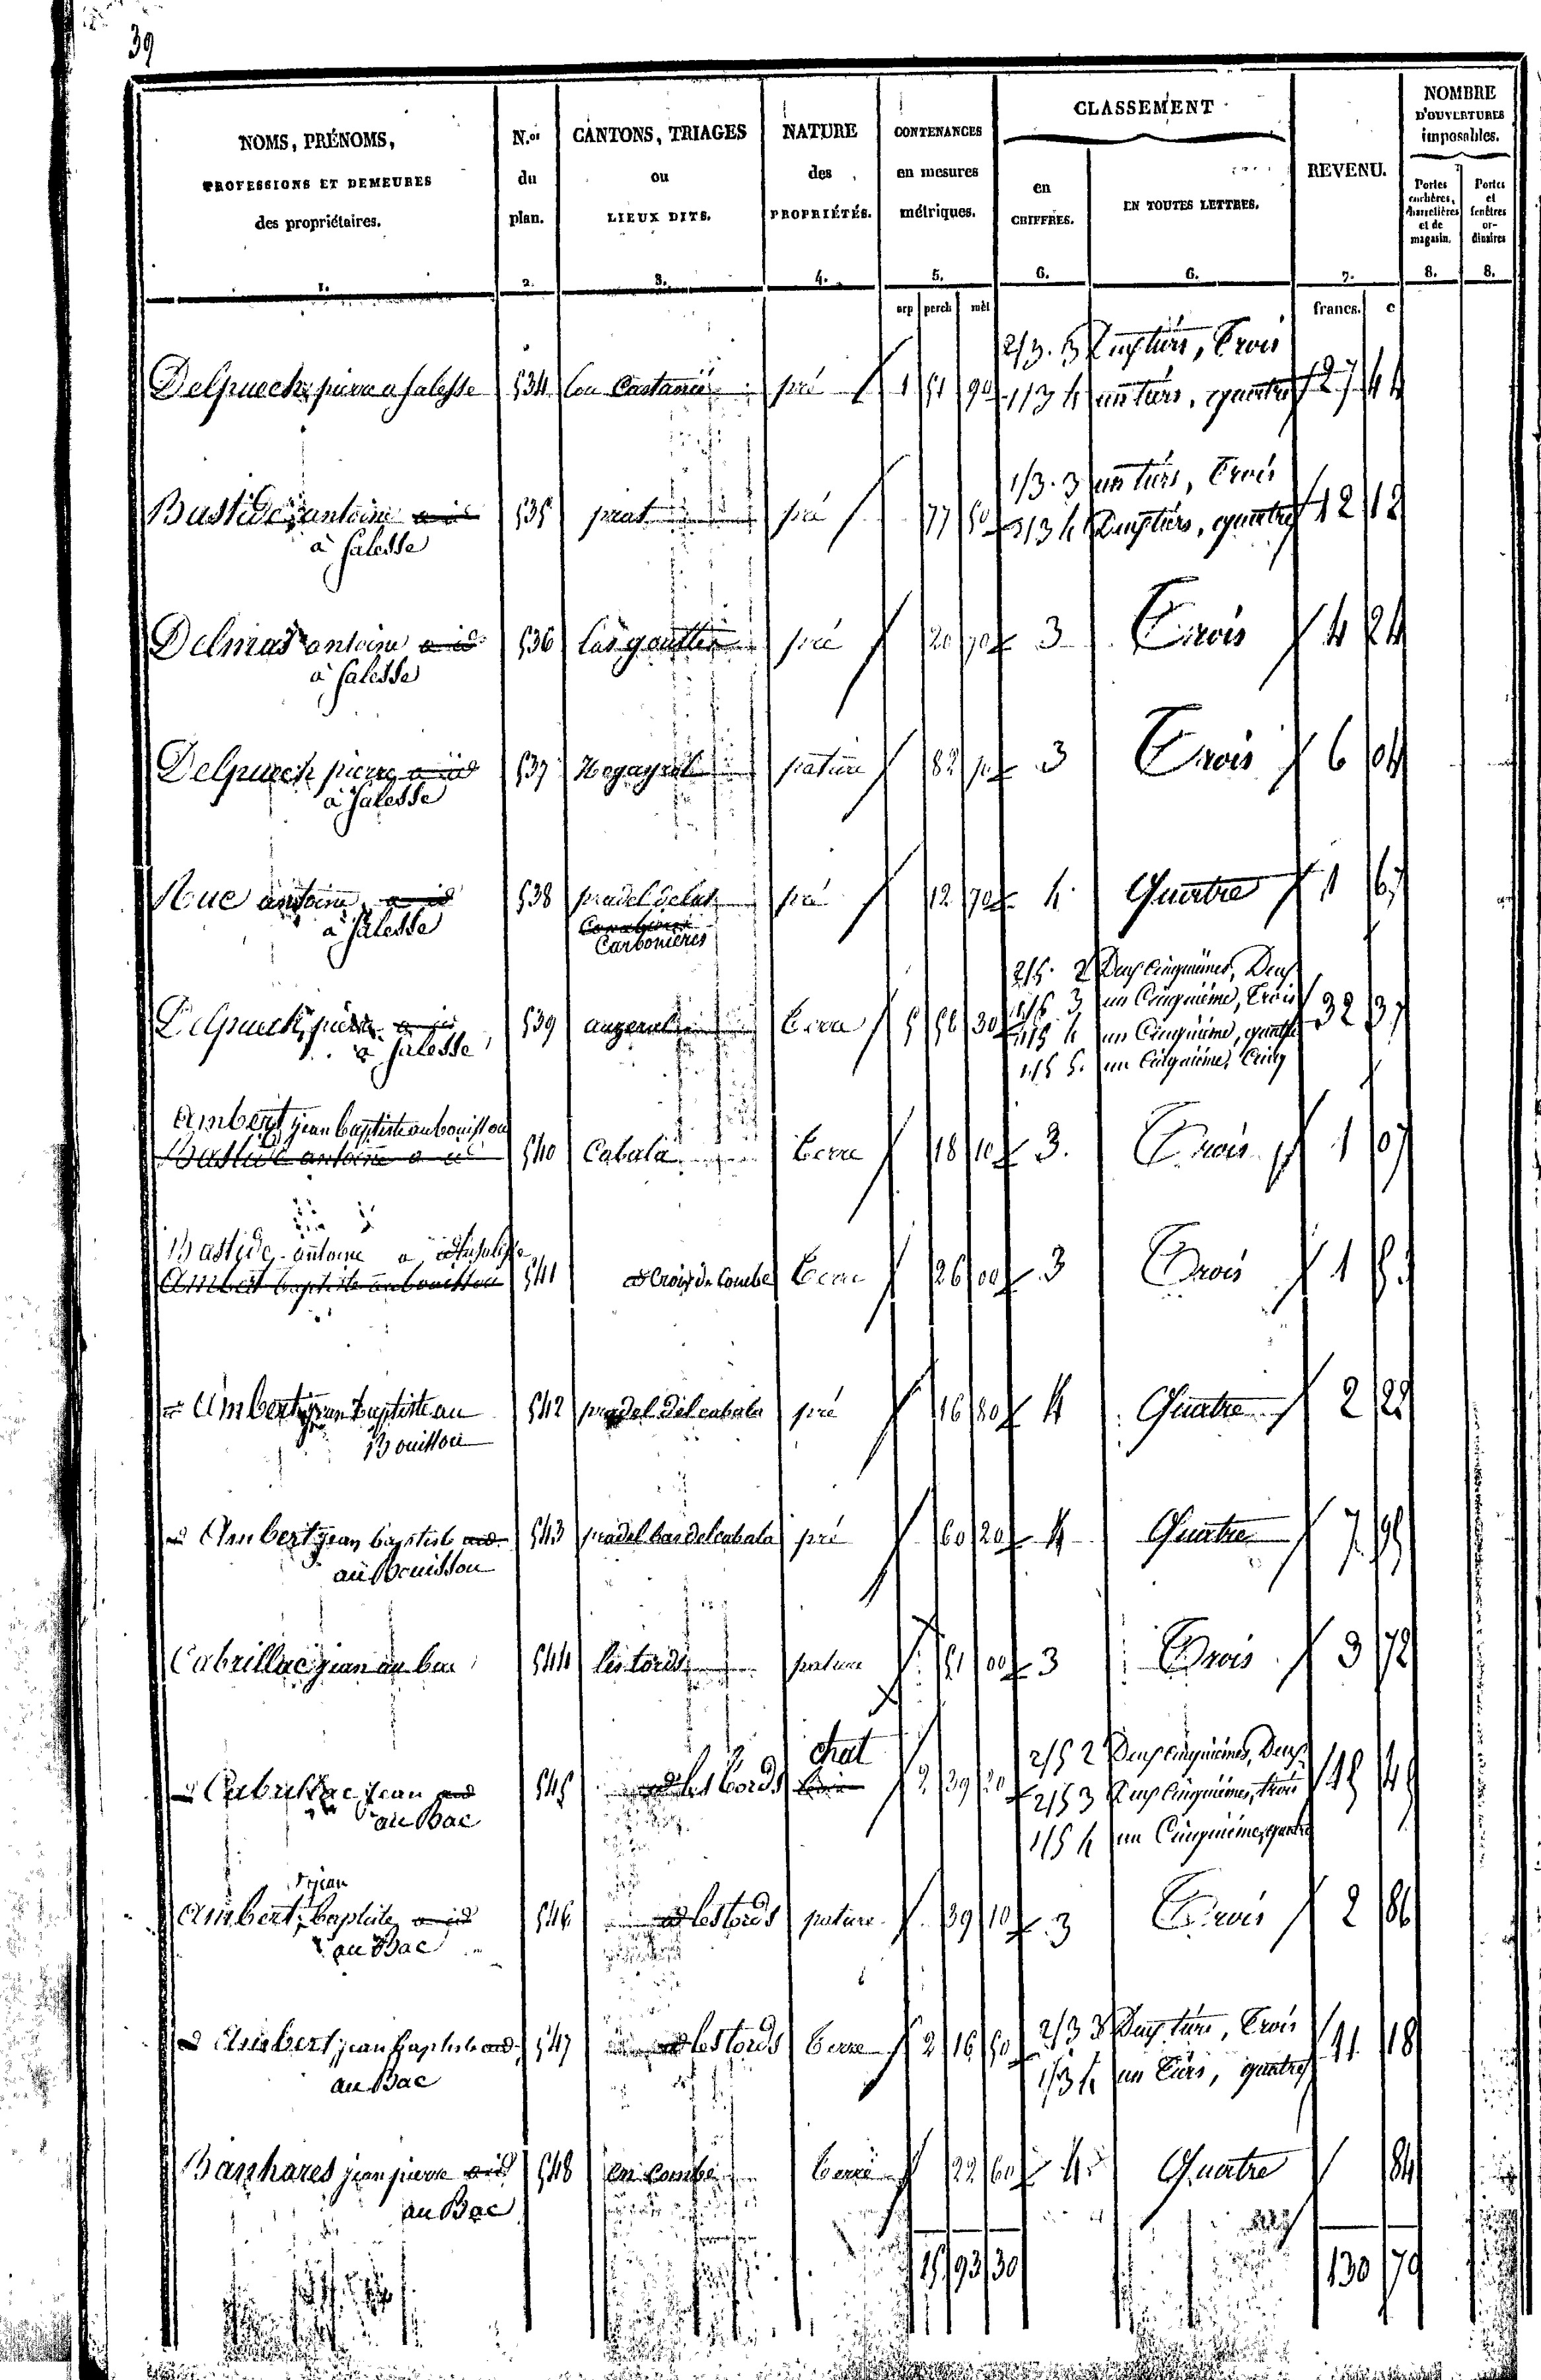 39
NOMS, PRÉNOMS,
PROFESSIONS ET DEMEURES
des propriétaires.
1.
N.os
du
plan.
2.
CANTONS, TRIAGES
ou
LIEUX DITS.
3.
NATURE
des
PROPRIÉTÉS.
4.
CONTENANCES
en mesures
métriques.
5.
CLASSEMENT
en
CHIFFRES.
6.
EN TOUTES LETTRES.
6.
REVENU.
7.
NOMBRE
D'OUVERTURES
imposables.
Portes
cochères,
charretières
et de
magasin.
8.
Portes
et
fenêtres
or-
dinaires
8.
arp perch mèt
francs. c
2/3. 3 Deux tiers, Trois
Delpuech, pierre a Salesse 534 lou Castanié pré 1 51 90 1/3 4 un tiers, quatre 27 44
1/3. 3 un tiers, Trois
Bastide, antoine a id 535 prat pré 77 50 2/3 4 Deux tiers, quatre 12 12
à Salesse
Delmas antoine a id 536 las goutter pré 20 70 3 Trois 4 24
à Salesse
Delpuech pierre a id 537 pature 82 3 Trois 6 04
à Salesse
antoine a id 538 pradel de las pré 12 70 4 Quatre 1 67
à Salesse
Carbonieres
2/5. 2 Deux Cinquièmes, Deux
1/5 3 un Cinquième, Trois
Delpuech, pierre a id 539 terre 5 56 30 1/5 4 un Cinquième, quatre 32 37
à Salesse
1/5 5. un Cinquième, Cinq
Ambert jean baptiste au bouissou
Bastide antoine a id 540 Cabala terre 18 10 3. Trois 1 07
Bastide antoine a Salesse
Ambert baptiste au bouissou 541 Croix de Combe terre 26 00 3 Trois 1
Ambert jean baptiste au 542 pradel del cabala pré 16 80 4 Quatre 2 22
Bouissou
Ambert jean baptiste 543 pradel bas del cabala pré 60 20 4 Quatre 7 95
au Bouissou
Cabrillac jean au bac 544 les tords pature 51 00 3 Trois 3 72
chat 2/5 2 Deux cinquièmes, Deux
Cabrillac jean 545 les tords 2 39 20 2/5 3 Deux Cinquièmes, trois
au Bac
1/5 4 un Cinquième, quatre
jean
Ambert, baptiste a id 546 les tords pature 39 10 3 Trois 2 86
au Bac
2/3 3 Deux tiers, Trois
Ambert jean baptiste 547 les tords terre 2 16 50 11 18
1/3 4 un tiers, quatre
au Bac
Banhares jean pierre 548 en combe terre 22 60 4 Quatre 84
au Bac
15 93 30 130 79